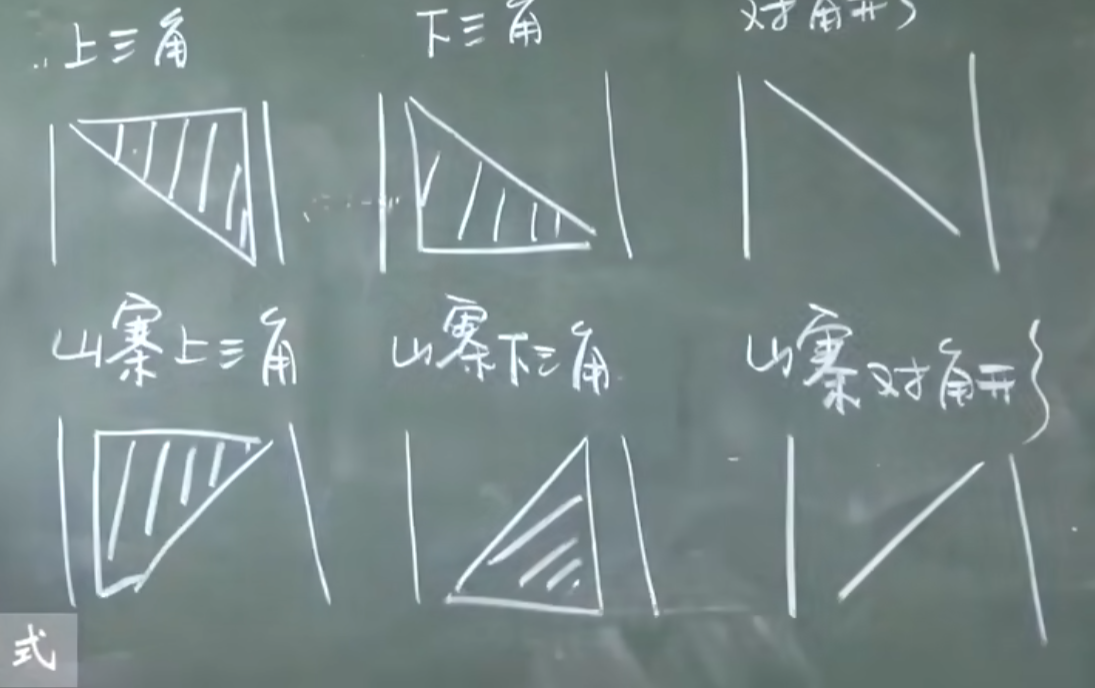 上三角 下三角 对角形
山寨上三角 山寨下三角 山寨对角形
式